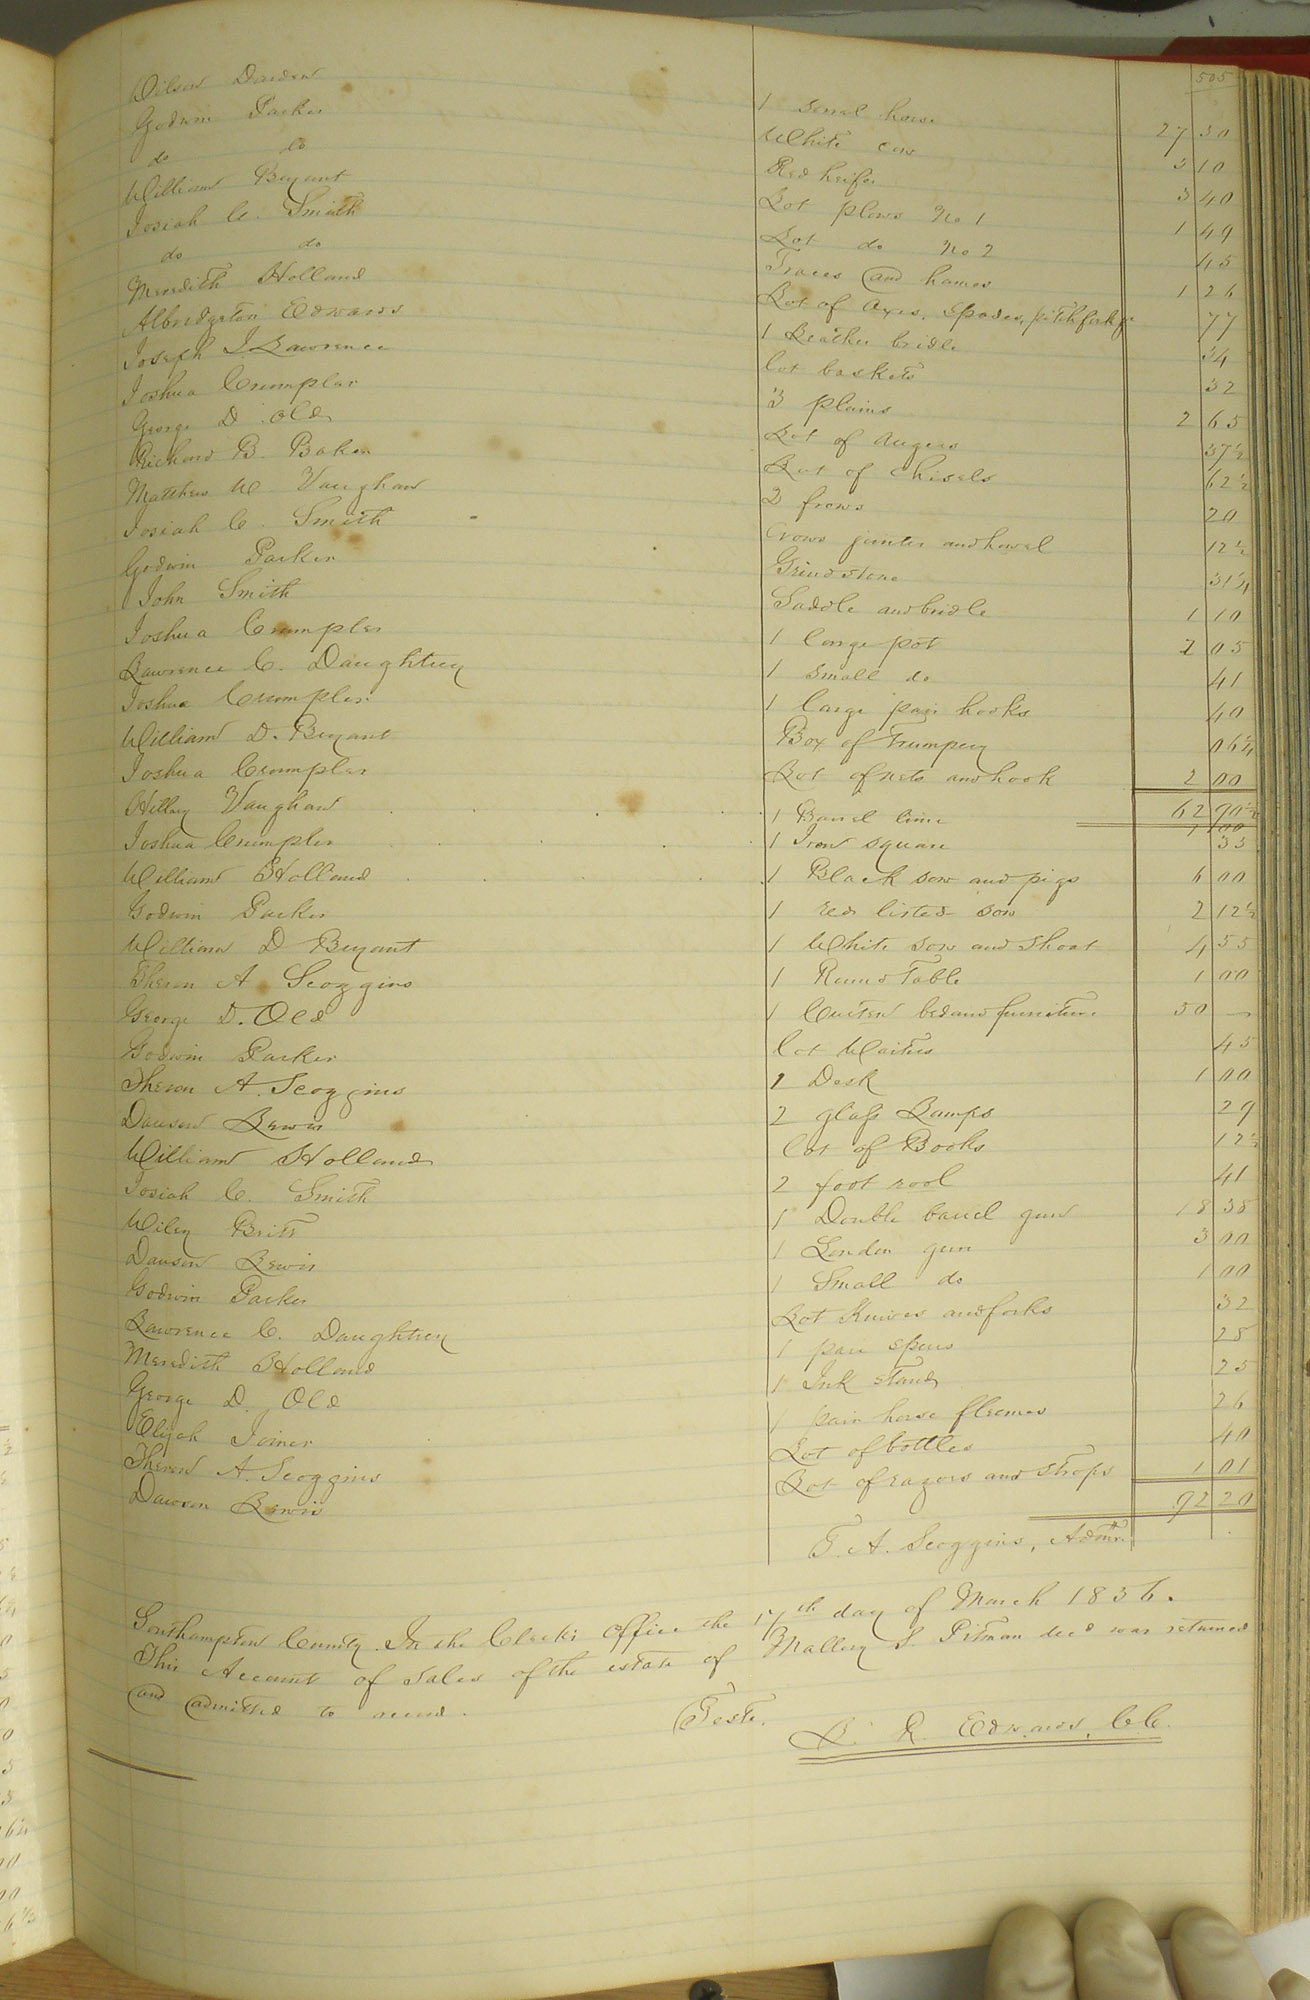 505
Wilson Darden 1 sorrel horse 27 30
Godwin Parker White cow 3 10
do do Red heifer 3 40
William Bryant Lot plows No 1 1 49
Josiah C. Smith Lot do No 2 45
do do Traces and hames 1 26
Meredith Holland Lot of axes, Spades, pitchfork &c 77
Albridgeton Edwards 1 Leather bridle 34
Joseph J Lawrence lot baskets 32
Joshua Crumpler 3 plains 2 65
George D. Old Lot of augers 37½
Richard B. Baker Lot of Chisels 62½
Matthew W. Vaughan 2 frows 20
Josiah C. Smith Crows jointer and howel 12½
Godwin Parker Grindstone 31¼
John Smith Saddle and bridle 1 10
Joshua Crumpler 1 large pot 2 05
Lawrence C. Daughtrey 1 small do 41
Joshua Crumpler 1 large pair hooks 40
William D. Bryant Box of Trumpery 06¼
Joshua Crumpler Lot of nets and hook 2 00
62 90½
Hillary Vaughan 1 Barrel lime 1 00
Joshua Crumpler 1 Iron square 33
William Holland 1 Black sow and pigs 6 00
Godwin Parker 1 red listed sow 2 12½
William D Bryant 1 White sow and shoat 4 55
Theron A Scoggins 1 Round Table 1 00
George D. Old 1 Curten bed and furniture 50 —
Godwin Parker lot Waiters 45
Theron A. Scoggins 1 Desk 1 00
Dawson Lewis 2 glass Lamps 29
William Holland lot of Books 12½
Josiah C. Smith 2 foot rool 41
Wiley Britt 1 Double barrel gun 18 38
Dawson Lewis 1 London gun 3 00
Godwin Parker 1 Small do 1 00
Lawrence C. Daughtrey Lot Knives and forks 32
Meredith Holland 1 pair spurs 25
George D. Old 1 Ink Stand 25
Elijah Joiner 1 pair horse fleemes 26
Theron A. Scoggins Lot of bottles 40
Dawson Lewis Lot of razors and Strops 1 01
92 20
T. A. Scoggins, Admr.
Southampton County. In the Clerk's office the 17th day of March 1836.
This Account of Sales of the estate of Mallory S. Pitman decd was returned
and admitted to record.
Teste,
L. R. Edwards, C.C.